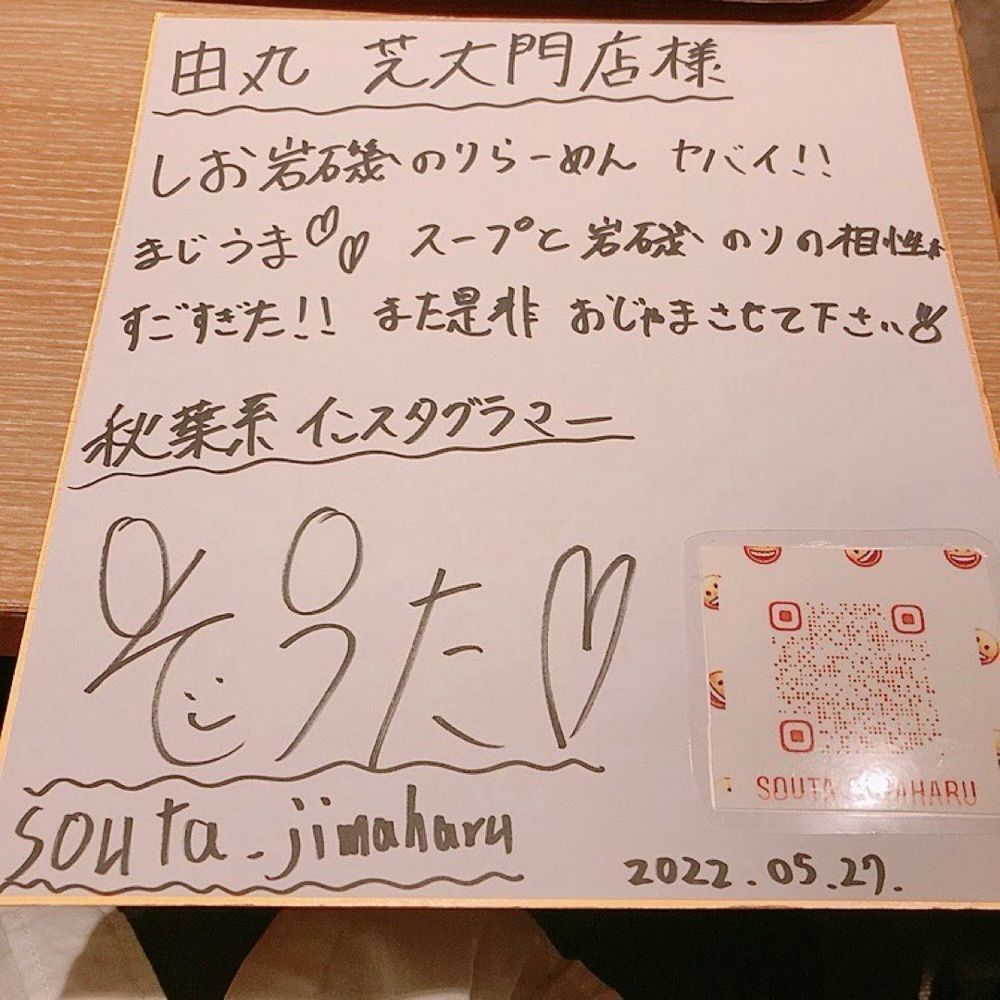 由丸 芝大門店様
しお岩磯のりらーめん ヤバイ!!
まじうま♡♡ スープと岩磯のりの相性が
すごすぎた!! また是非 おじゃまさせて下さい
秋葉系 インスタグラマー
そうた♡
souta_jimaharu
SOUTA_JIMAHARU
2022.05.27.